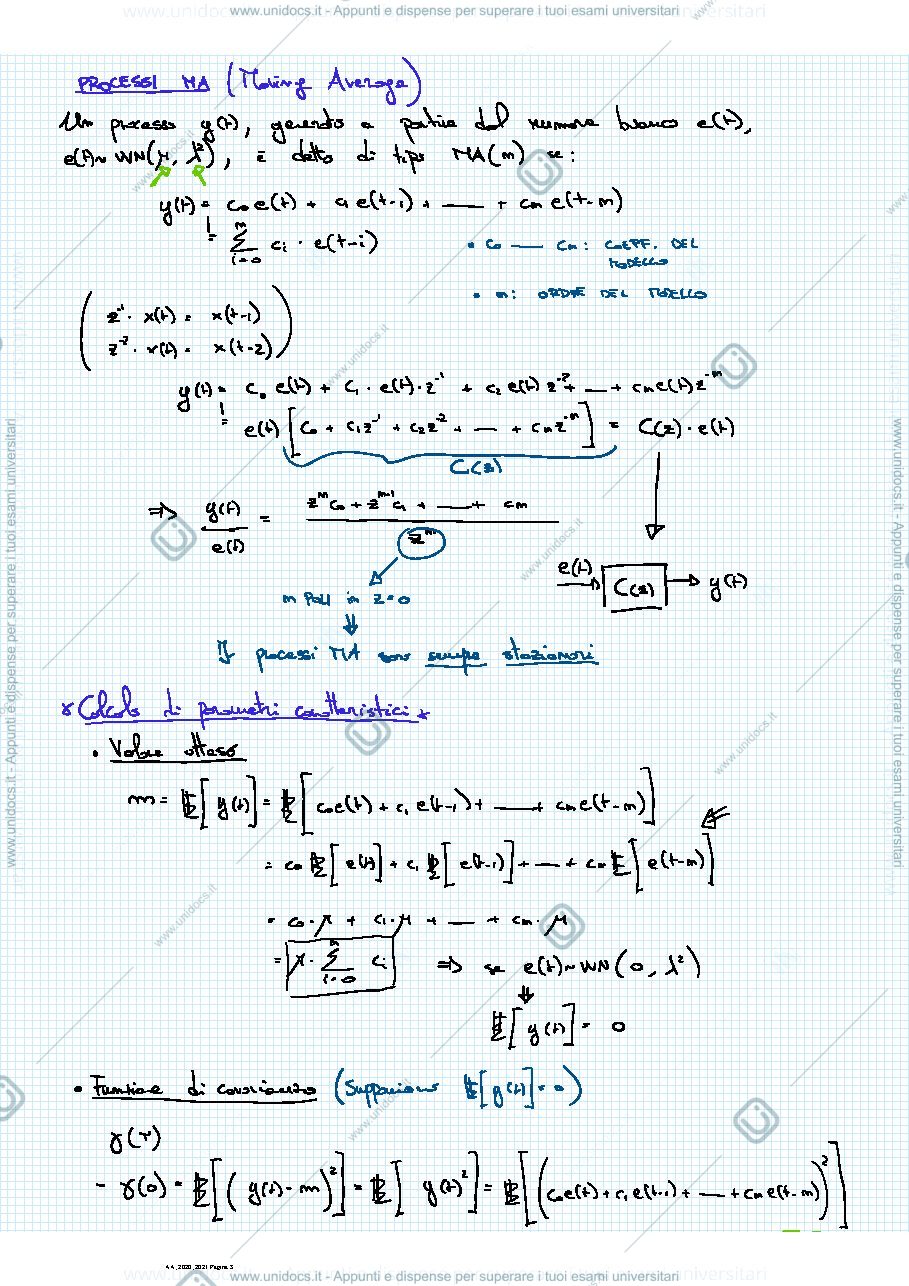 www.unidocs.it - Appunti e dispense per superare i tuoi esami universitari
PROCESSI MA (Moving Average)
Un processo y(t), generato a partire dal rumore bianco e(t),
e(t) ~ WN(μ, λ²), è detto di tipo MA(m) se:
y(t) = c₀e(t) + c₁e(t-1) + — + cₘe(t-m)
= Σᵢ₌₀ᵐ cᵢ · e(t-i)
• c₀ — cₘ: COEFF. DEL
MODELLO
• m: ORDINE DEL MODELLO
z⁻¹ · x(t) = x(t-1)
z⁻² · x(t) = x(t-2)
y(t) = c₀ e(t) + c₁ · e(t) · z⁻¹ + c₂ e(t) z⁻² + — + cₘe(t)z⁻ᵐ
= e(t) [c₀ + c₁z⁻¹ + c₂z⁻² + — + cₘz⁻ᵐ] = C(z) · e(t)
C(z)
⇒ y(t)/e(t) = (zᵐc₀ + zᵐ⁻¹c₁ + — + cₘ)/zᵐ
e(t) → C(z) → y(t)
m Poli in z=0
⇓
I processi MA sono sempre stazionari
* Calcolo di parametri caratteristici *
• Valore atteso
m = E[y(t)] = E[c₀e(t) + c₁e(t-1) + — + cₘe(t-m)]
= c₀E[e(t)] + c₁E[e(t-1)] + — + cₘE[e(t-m)]
= c₀·μ + c₁·μ + — + cₘ·μ
= μ · Σᵢ₌₀ᵐ cᵢ ⇒ se e(t) ~ WN(0, λ²)
⇓
E[y(t)] = 0
• Funzione di covarianza (Supponiamo E[y(t)]=0)
γ(τ)
- γ(0) = E[(y(t) - m)²] = E[y(t)²] = E[(c₀e(t) + c₁e(t-1) + — + cₘe(t-m))²]
AA_2020_2021 Pagina 3
www.unidocs.it - Appunti e dispense per superare i tuoi esami universitari